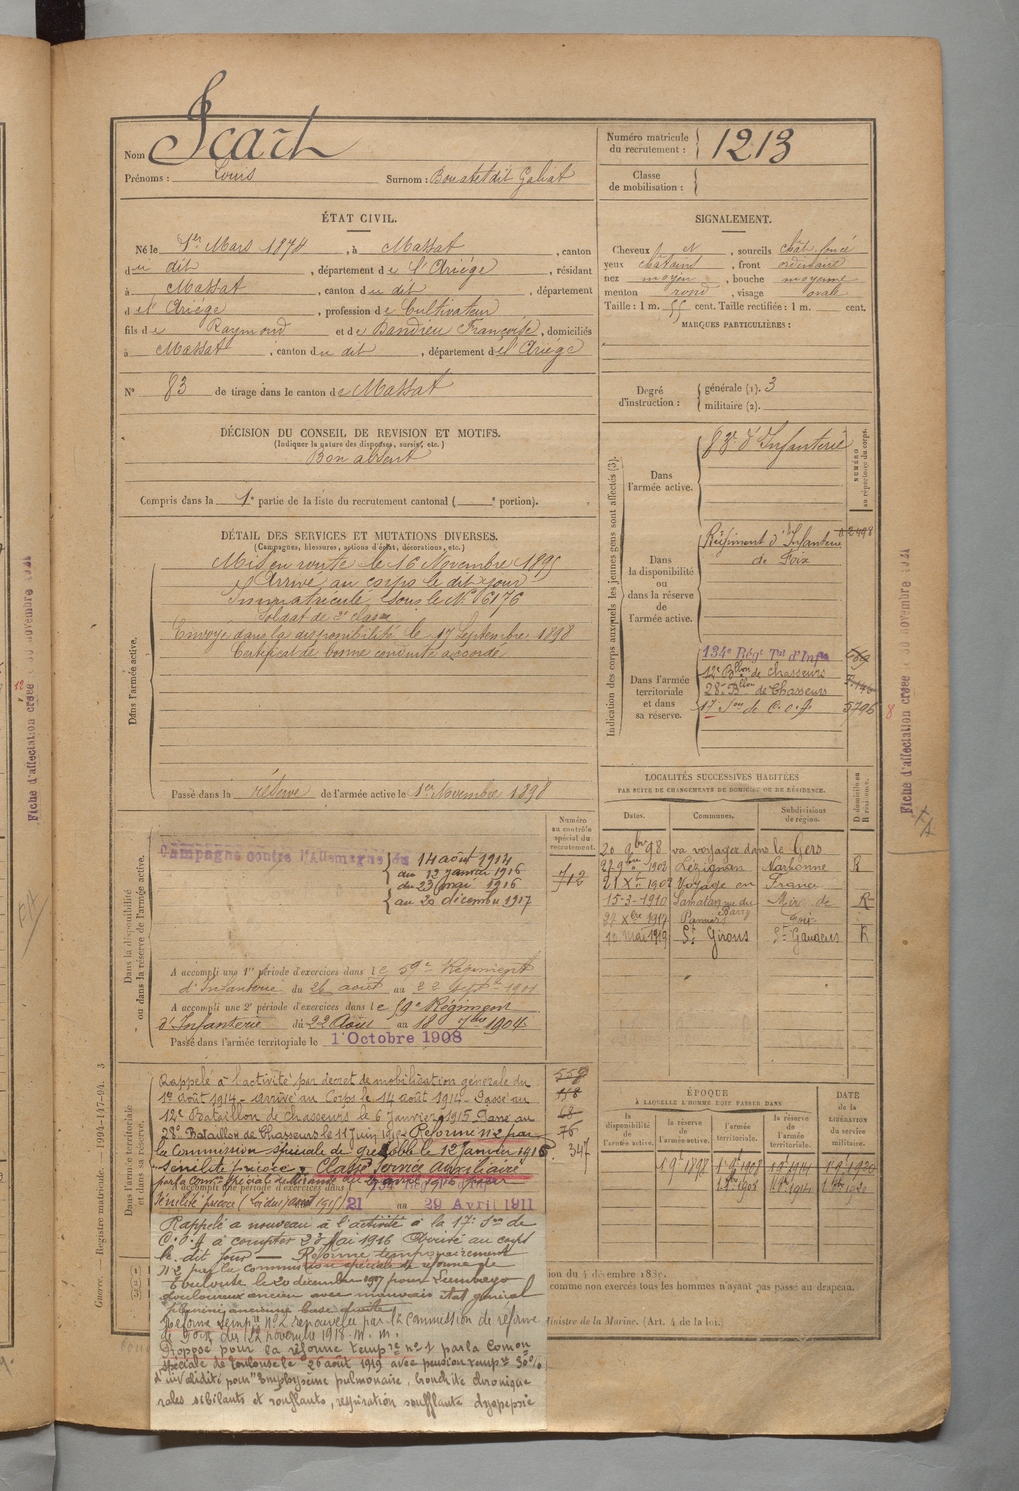 Nom Icart
Prénoms : Louis Surnom : Boustet dit Galiat
Numéro matricule du recrutement : 1213
Classe de mobilisation :
ÉTAT CIVIL.
Né le 1er Mars 1874, à Massat, canton
du dit, département de l'Ariége, résidant
à Massat, canton du dit, département
d el'Ariége, profession de Cultivateur
fils de Raymond et de Bandreu Françoise, domiciliés
à Massat, canton du dit, département de l'Ariége
N° 83 de tirage dans le canton de Massat
DÉCISION DU CONSEIL DE REVISION ET MOTIFS.
(Indiquer la nature des dispenses, sursis, etc.)
Bon absent
Compris dans la 1e partie de la liste du recrutement cantonal ( e portion).
SIGNALEMENT.
Cheveux , sourcils chât. foncé
yeux châtains, front ordinaire
nez moyen, bouche moyenne
menton rond, visage ovale
Taille : 1 m. 55 cent. Taille rectifiée : 1 m. cent.
MARQUES PARTICULIÈRES :
Degré d'instruction : générale (1). 3
militaire (2).
Indication des corps auxquels les jeunes gens sont affectés (3).
NUMÉRO au répertoire du corps.
Dans l'armée active. 83e d'Infanterie
Dans la disponibilité ou dans la réserve de l'armée active. Régiment d'Infanterie de Foix
Dans l'armée territoriale et dans sa réserve. 134e Régt Tal d'Infie
12e Bllon de chasseurs
28e Bllon de Chasseurs
17e Son de C.O.A 5796
DÉTAIL DES SERVICES ET MUTATIONS DIVERSES.
(Campagnes, blessures, actions d'éclat, décorations, etc.)
Dans l'armée active.
Mis en route le 16 Novembre 1895
Arrivé au corps le dit jour
Immatriculé sous le N° 6176
Soldat de 2e classe
Envoyé dans la disponibilité le 17 Septembre 1898
Certificat de bonne conduite accordé
Passé dans la réserve de l'armée active le 1er Novembre 1898
Numéro au contrôle spécial du recrutement.
712
Dans la disponibilité ou dans la réserve de l'armée active.
Campagne contre l'Allemagne du 14 août 1914
au 13 janvier 1916
du 23 mai 1916
au 20 décembre 1917
A accompli une 1re période d'exercices dans le 59e Régiment
d'Infanterie du 26 août au 22 Septbre 1901
A accompli une 2e période d'exercices dans le 59e Régiment
d'Infanterie du 22 Août au 18 7bre 1904
Passé dans l'armée territoriale le 1 Octobre 1908
LOCALITÉS SUCCESSIVES HABITÉES
PAR SUITE DE CHANGEMENTS DE DOMICILE OU DE RÉSIDENCE.
Dates. Communes. Subdivisions de région. D domicile ou R résidence.
20 9bre 98 va voyager dans le Gers
27 9bre 1902 Lézignan Narbonne R
21 Xbre 1902 Voyage en France
15-3-1910 Samatan Mir de R
27 Xbre 1917 Pamiers Foix
12 mai 1919 St Girons St Gaudens R
Dans l'armée territoriale et dans sa réserve.
Rappelé à l'activité par décret de mobilisation générale du
1er août 1914 - arrivé au Corps le 14 août 1914 - Passé au
12e Bataillon de Chasseurs le 6 Janvier 1915 Passé au
28e Bataillon de Chasseurs le 11 Juin 1915 Réformé n°2 par
la Commission spéciale de Grenoble le 12 Janvier 1916.
Sénilité précoce Classé Service Auxiliaire
21 au 29 Avril 1911
Rappelé à nouveau à l'activité à la 17e Son de
C.O.A à compter 23 Mai 1916 Arrivé au corps
le dit jour — Réformé temporairement
n°2 par la commission spéciale de réforme de
Toulouse le 20 décembre 1917 pour Lumbago
douloureux ancien avec mauvais état général
Réforme tempre n°2 renouvelée par la commission de réforme
de Foix du 12 novembre 1918. m. m.
Proposé pour la réforme tempre n°1 par la Comon
spéciale de Toulouse le 26 août 1919 avec pension tempre 30%
d'invalidité pour Emphysème pulmonaire, bronchite chronique
rales sibilants et ronflants, respiration soufflante dyspepsie
559
68
76
347
ÉPOQUE
À LAQUELLE L'HOMME DOIT PASSER DANS
la disponibilité de l'armée active. la réserve de l'armée active. l'armée territoriale. la réserve de l'armée territoriale.
DATE de la LIBÉRATION du service militaire.
ion du 4 décembre 183
comme non exercés tous les hommes n'ayant pas passé au drapeau.
Ministre de la Marine. (Art. 4 de la loi.)
Guerre. — Registre matricule. — 1994-147-94. 3
Fiche d'affectation créée le 30 novembre 1921